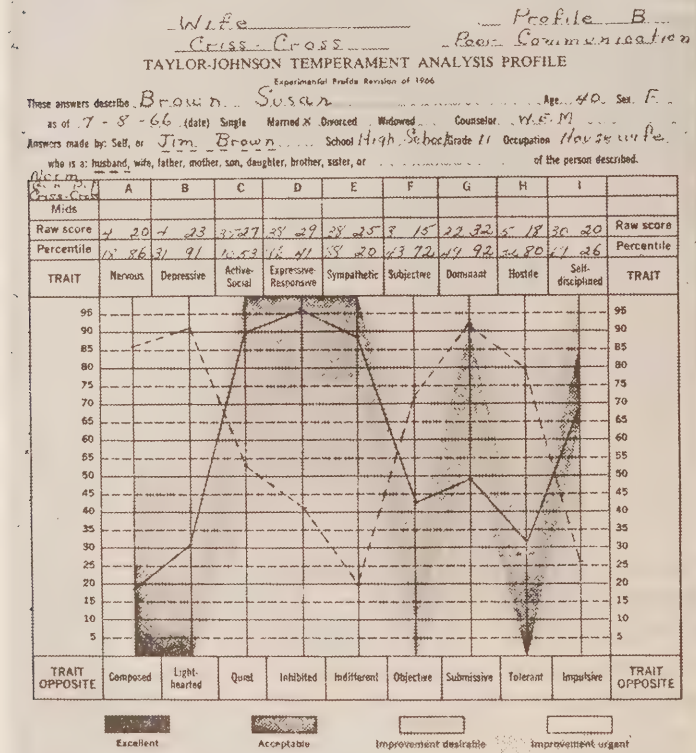 Wife Profile B
Criss-Cross Poor Communication
TAYLOR-JOHNSON TEMPERAMENT ANALYSIS PROFILE
Experimental Profile Revision of 1966
These answers describe Brown Susan Age 40 Sex F
as of 7-8-66 (date) Single Married X Divorced Widowed Counselor W.E.M
Answers made by: Self, or Jim Brown School High School Grade 11 Occupation Housewife
who is a: husband, wife, father, mother, son, daughter, brother, sister, or of the person described.
Norm
Criss-Cross A B C D E F G H I
Mids
Raw score 4 20 4 23 27 38 29 38 25 8 15 22 32 5 18 30 20 Raw score
Percentile 18 86 31 91 53 41 88 20 43 72 49 92 32 80 26 Percentile
TRAIT Nervous Depressive Active-Social Expressive-Responsive Sympathetic Subjective Dominant Hostile Self-disciplined TRAIT
95 95
90 90
85 85
80 80
75 75
70 70
65 65
60 60
55 55
50 50
45 45
40 40
35 35
30 30
25 25
20 20
15 15
10 10
5 5
TRAIT OPPOSITE Composed Light-hearted Quiet Inhibited Indifferent Objective Submissive Tolerant Impulsive TRAIT OPPOSITE
Excellent Acceptable Improvement desirable Improvement urgent